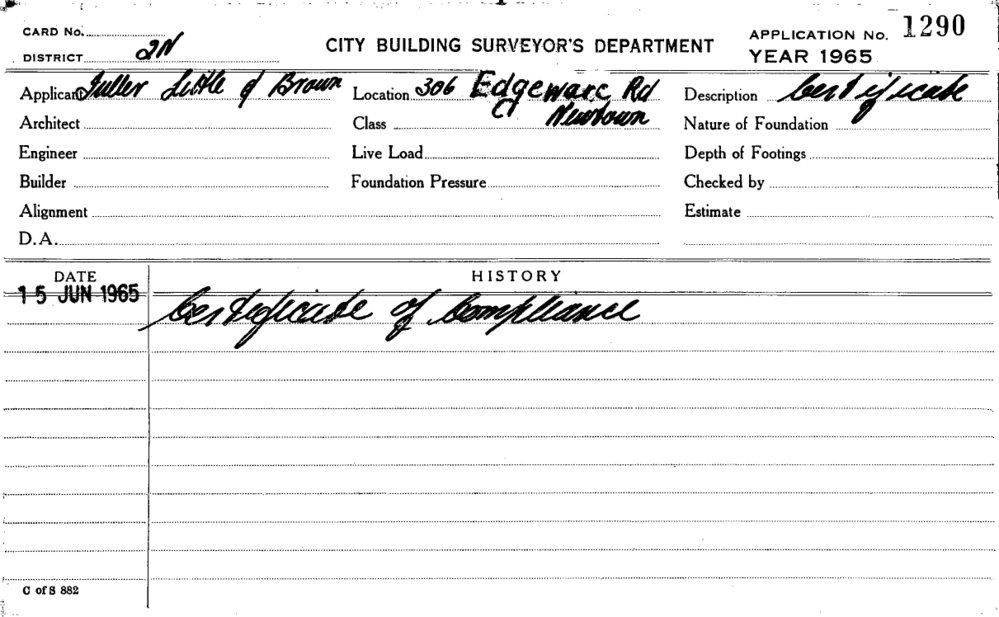 CARD No.
DISTRICT 2N
CITY BUILDING SURVEYOR'S DEPARTMENT
APPLICATION No. 1290
YEAR 1965
Applicant Fuller Little & Brown
Location 306 Edgeware Rd
Newtown
Description Certificate
Architect
Class
Nature of Foundation
Engineer
Live Load
Depth of Footings
Builder
Foundation Pressure
Checked by
Alignment
Estimate
D.A.
DATE
HISTORY
15 JUN 1965
Certificate of Compliance
C of S 882